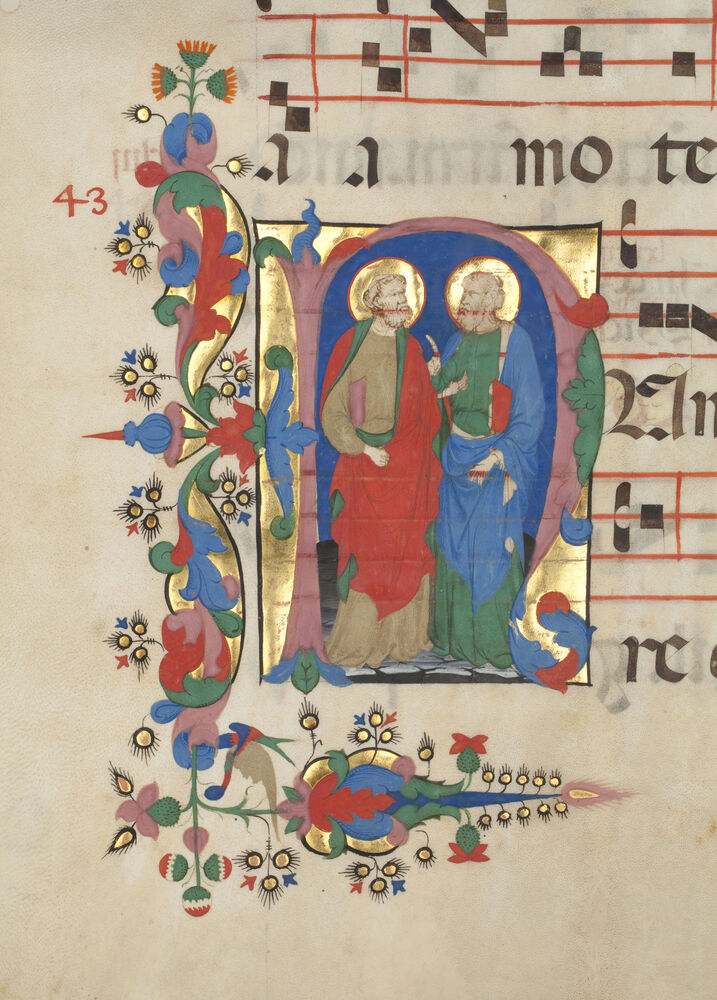 a a mo te
43
Am
re